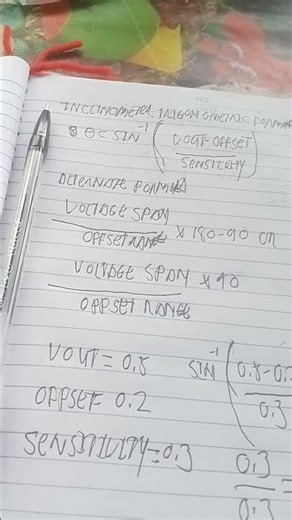 INCLINOMETER TRIGONOMETRIC FORMULA
θ = SIN⁻¹ (VOUT-OFFSET
SENSITIVITY)
ALTERNATE FORMULA
VOLTAGE SPAN
OFFSET RANGE × 180-90 OR
VOLTAGE SPAN × 90
OFFSET RANGE
VOUT = 0.5 SIN⁻¹ (0.5-0.
0.3
OFFSET = 0.2
SENSITIVITY = 0.3 0.3 =
0.3